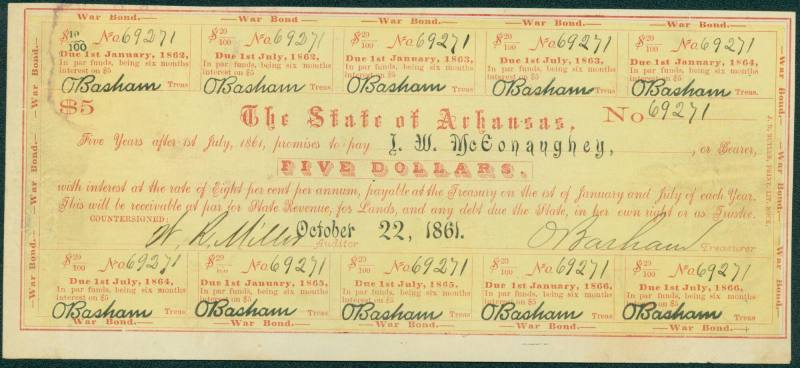 War Bond. War Bond. War Bond. War Bond. War Bond.
$10/100 No 69271 $20/100 No 69271 $20/100 No 69271 $20/100 No 69271 $20/100 No 69271
Due 1st January, 1862, Due 1st July, 1862, Due 1st January, 1863, Due 1st July, 1863, Due 1st January, 1864,
In par funds, being six months In par funds, being six months In par funds, being six months In par funds, being six months In par funds, being six months
interest on $5 interest on $5 interest on $5 interest on $5 interest on $5
O Basham Treas O Basham Treas O Basham Treas O Basham Treas O Basham Treas
$5 The State of Arkansas, No 69271
Five Years after 1st July, 1861, promises to pay J. W. McConaughey, , or Bearer,
FIVE DOLLARS,
with interest at the rate of Eight per cent per annum, payable at the Treasury on the 1st of January and July of each Year.
This will be receivable at par for State Revenue, for Lands, and any debt due the State, in her own right or as Trustee.
COUNTERSIGNED:
W. R. Miller Auditor October 22, 1861. O Basham Treasurer
$20/100 No 69271 $20/100 No 69271 $20/100 No 69271 $20/100 No 69271 $20/100 No 69271
Due 1st July, 1864, Due 1st January, 1865, Due 1st July, 1865, Due 1st January, 1866, Due 1st July, 1866,
In par funds, being six months In par funds, being six months In par funds, being six months In par funds, being six months In par funds, being six months
interest on $5 interest on $5 interest on $5 interest on $5 interest on $5
O Basham Treas O Basham Treas O Basham Treas O Basham Treas O Basham Treas
War Bond. War Bond. War Bond. War Bond. War Bond.
War Bond. War Bond. War Bond.
War Bond. War Bond. War Bond.